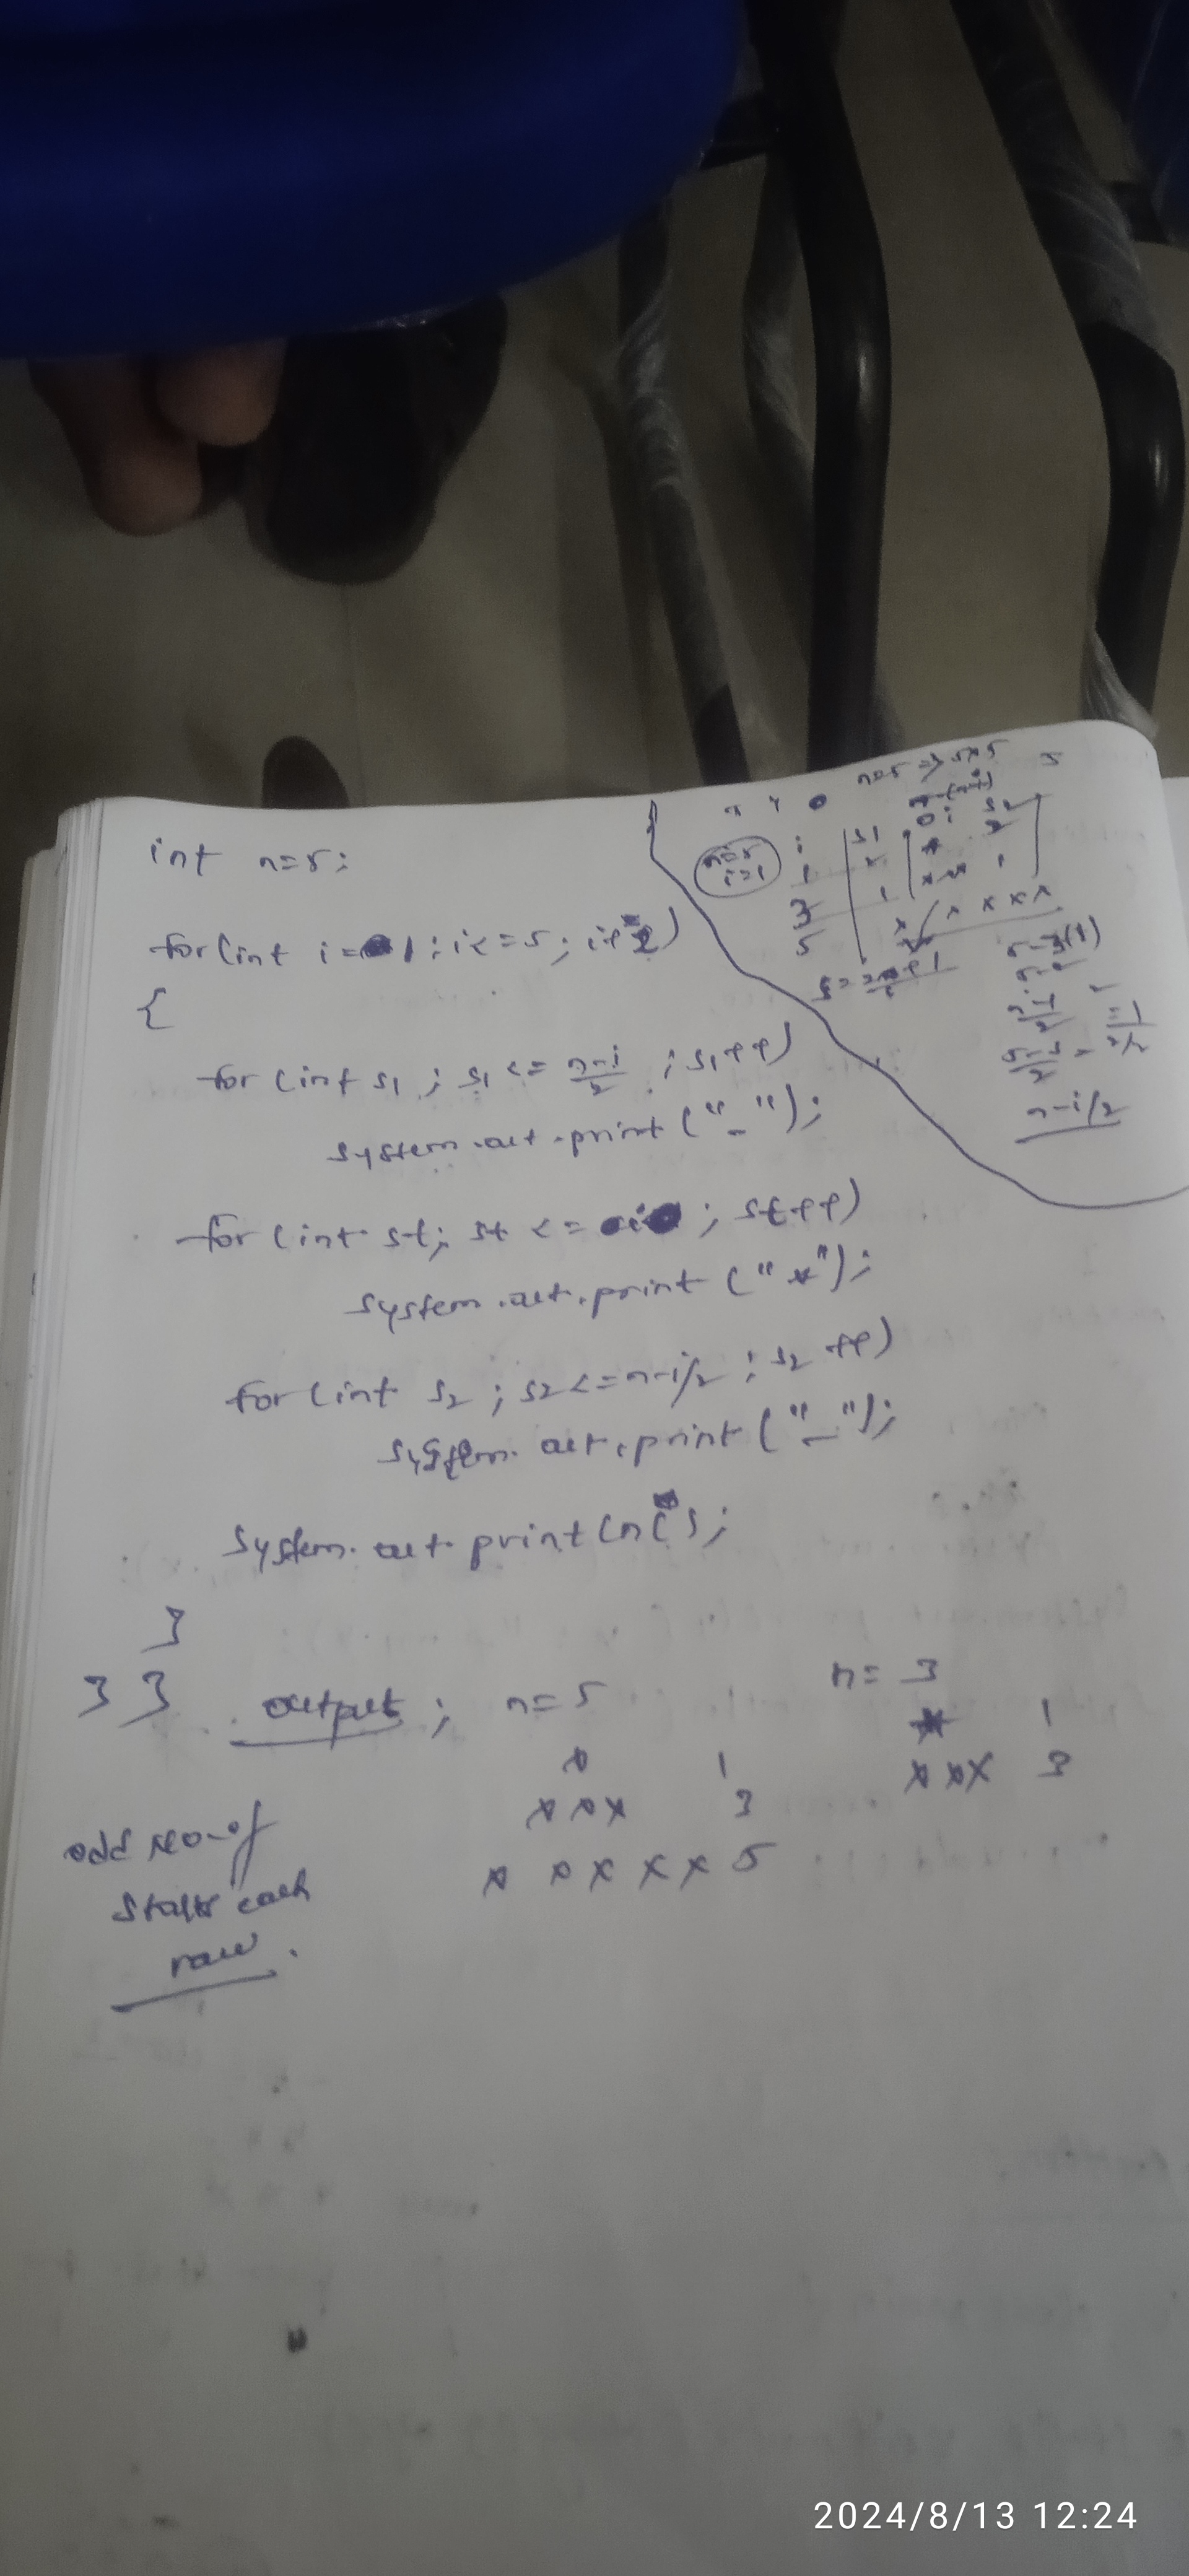 int n=5;
for(int i=1; i<=5; i+2)
{
for (int s1 ; s1 <= n-i/2 ; s1++)
system.out.print ("_");
for (int st; st <= i ; st++)
system.out.print ("*");
for (int s2 ; s2<=n-i/2 ; s2 ++)
system. out.print ("_");
system. out. println( );
}
} }
output ; n=5
*  1
* * *  3
* * * * *  5
n= 3
*  1
* * *  3
odd no-of
each
raw .
n=5 => 5*5
5
n=5
i=1
i s1
1 2 * 2
3 1 * * * 1
5
n-i/2
2024/8/13 12:24